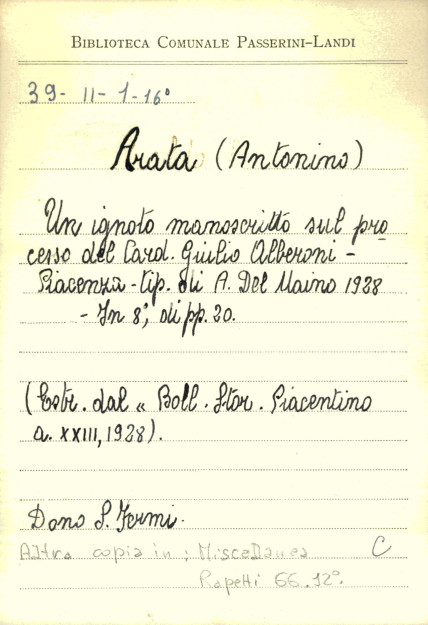 BIBLIOTECA COMUNALE PASSERINI-LANDI
39- II-1-16°
Arata (Antonino)
Un ignoto manoscritto sul pro
cesso del Card. Giulio Alberoni -
Piacenza - tip. di A. Del Maino 1928
- In 8°, di pp. 20.
(Estr. dal « Boll. Stor. Piacentino
a. XXIII, 1928).
Dono S. Fermi.
Altra copia in : Miscellanea C
Rapetti 66.12°.